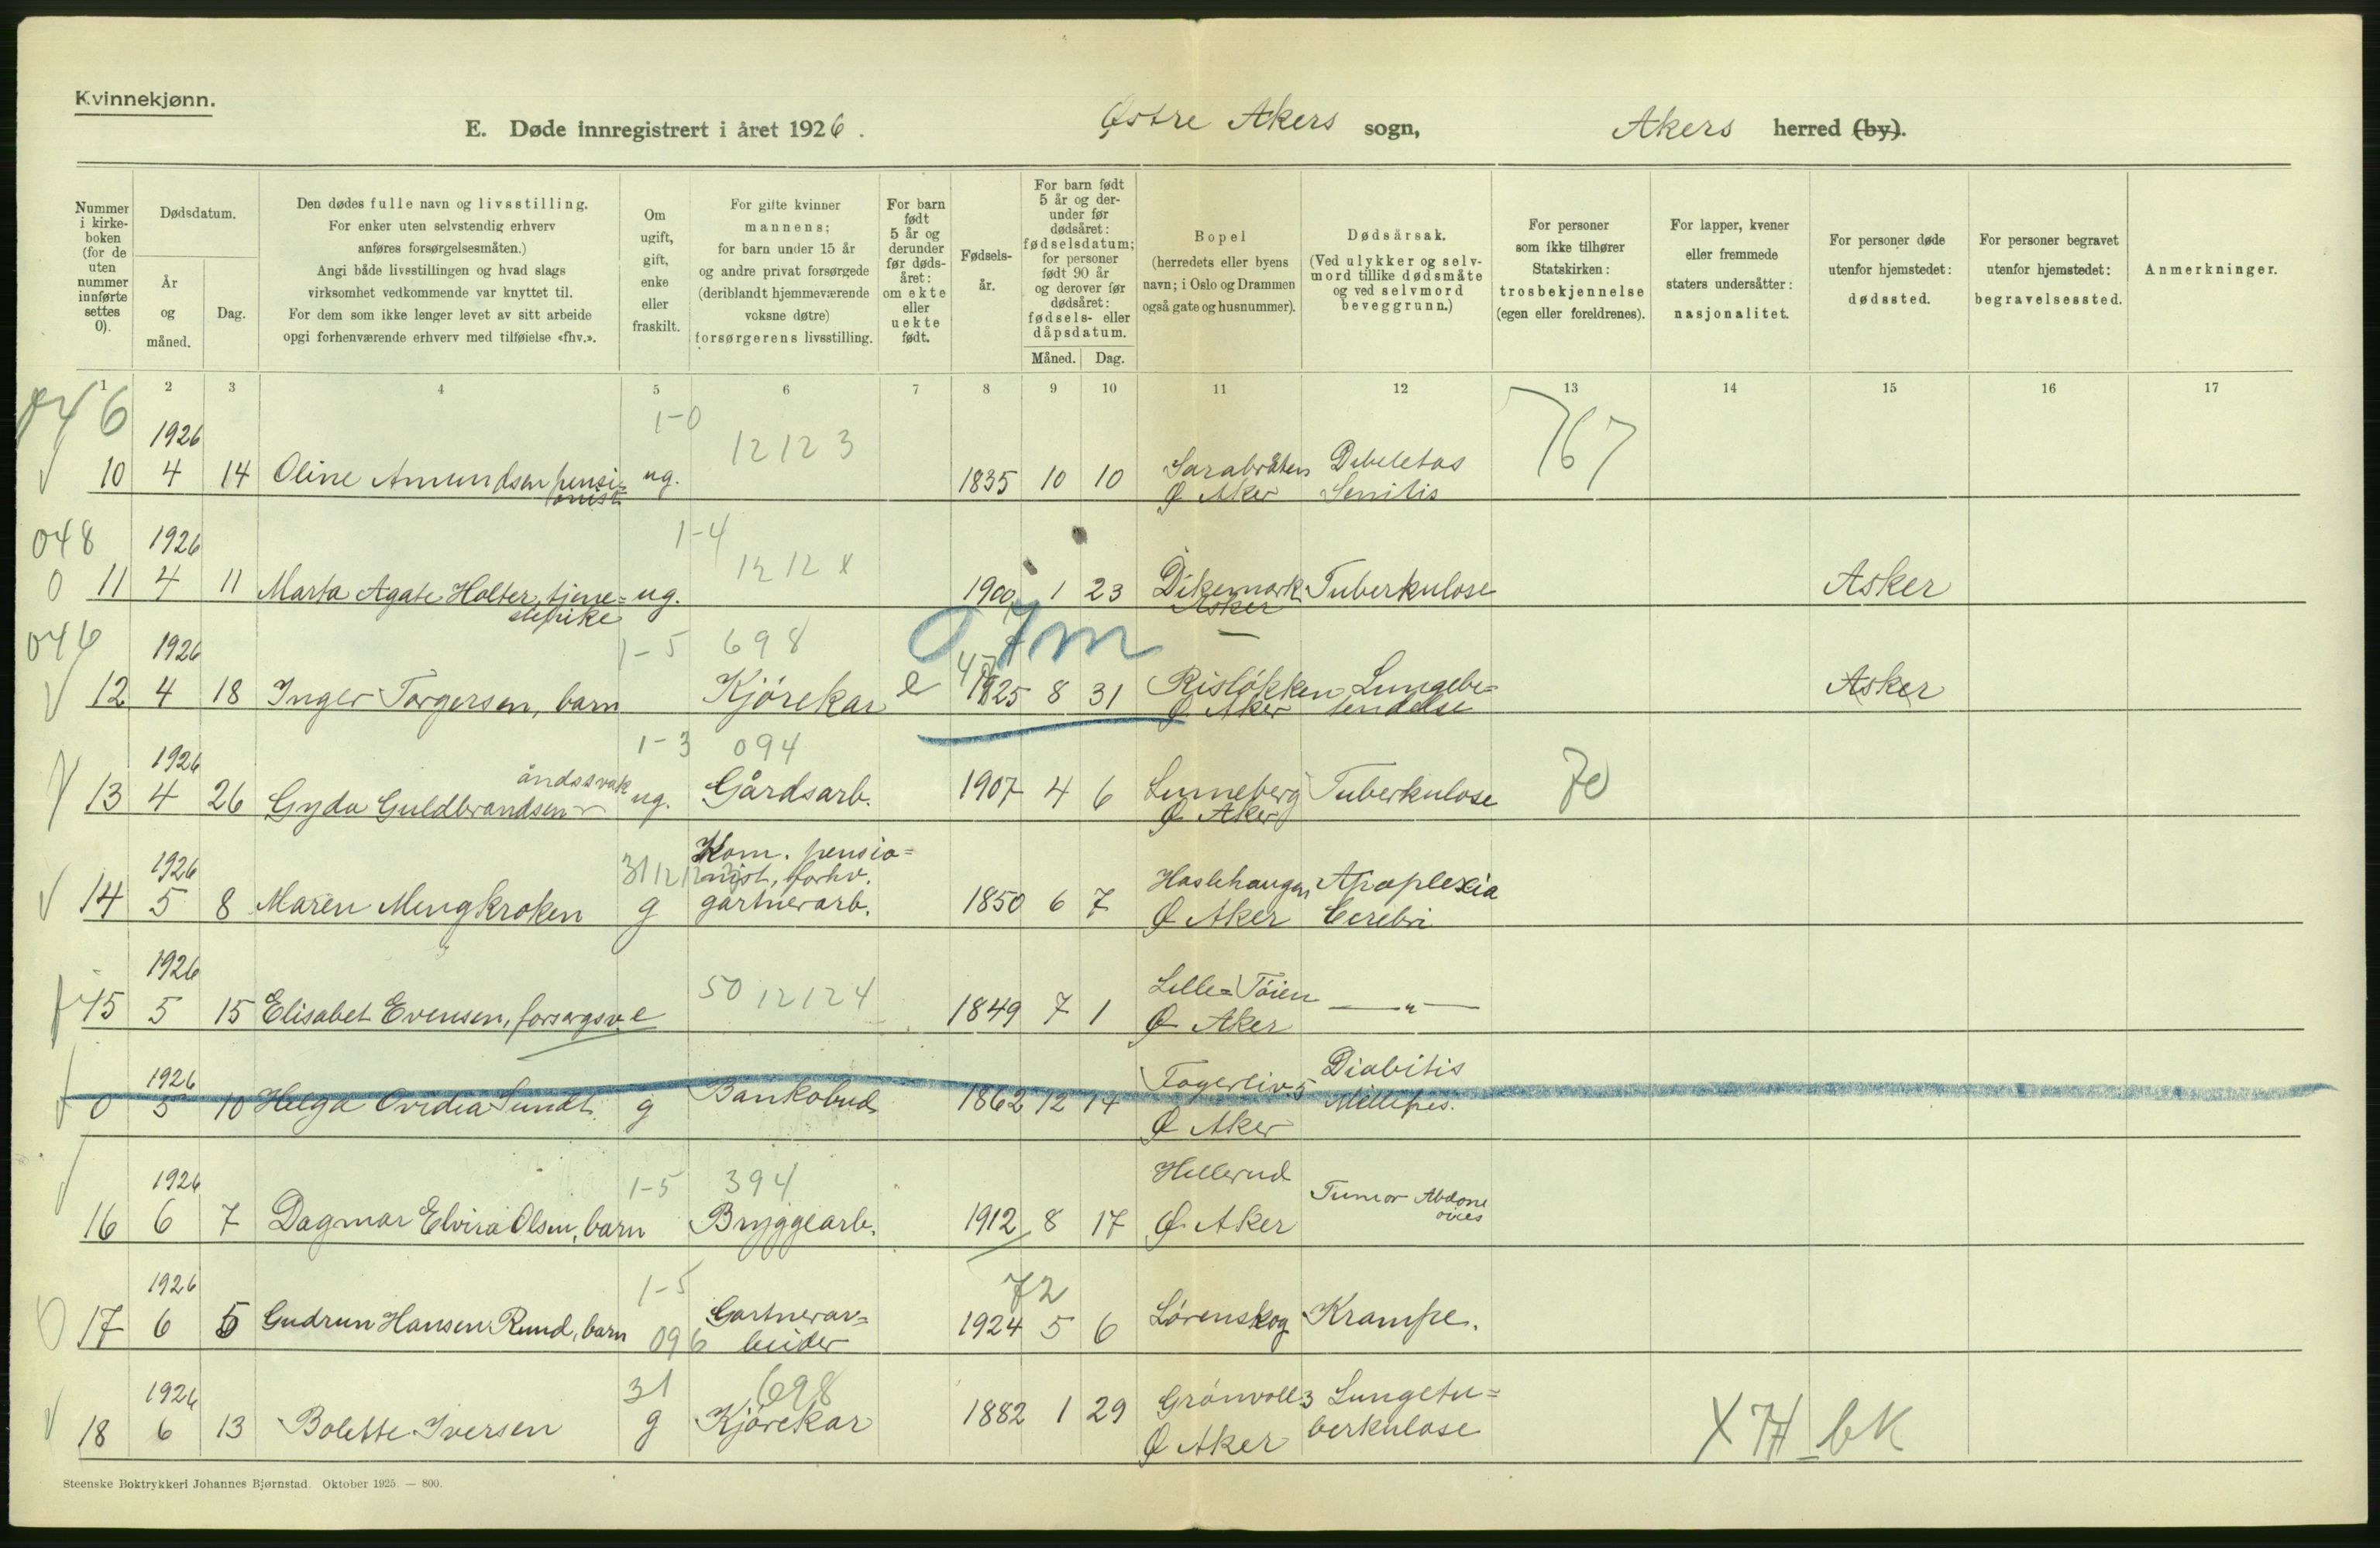 Kvinnekjønn.
E. Døde innregistrert i året 1926. Østre Akers sogn, Akers herred (by).
Nummer i kirke-boken (for de uten nummer innførte settes 0).
Dødsdatum.
År og måned.
Dag.
Den dødes fulle navn og livsstilling.
For enker uten selvstendig erhverv
anføres forsørgelsesmåten.)
Angi både livsstillingen og hvad slags
virksomhet vedkommende var knyttet til.
For dem som ikke lenger levet av sitt arbeide
opgi forhenværende erhverv med tilføielse «fhv.».
Om ugift, gift, enke eller fraskilt.
For gifte kvinner
mannens;
for barn under 15 år
og andre privat forsørgede
(deriblandt hjemmeværende
voksne døtre)
forsørgerens livsstilling.
For barn født 5 år og derunder før døds-året: om ekte eller uekte født.
Fødsels-år.
For barn født 5 år og der-under før dødsåret: fødselsdatum; for personer født 90 år og derover før dødsåret: fødsels- eller dåpsdatum.
Måned. Dag.
Bopel
(herredets eller byens
navn; i Oslo og Drammen
også gate og husnummer).
Dødsårsak.
(Ved ulykker og selv-
mord tillike dødsmåte
og ved selvmord
beveggrunn.)
For personer
som ikke tilhører
Statskirken:
trosbekjennelse
(egen eller foreldrenes).
For lapper, kvener
eller fremmede
staters undersåtter:
nasjonalitet.
For personer døde
utenfor hjemstedet:
dødssted.
For personer begravet
utenfor hjemstedet:
begravelsessted.
Anmerkninger.
1 2 3 4 5 6 7 8 9 10 11 12 13 14 15 16 17
046 1926 1-0 12123 767
10 4 14 Oline Amundsen pensi= ug. 1835 10 10 Sarabråten Debeletas
onist Ø Aker Senilis
048 1926 1-4 1212x
0 11 4 11 Marta Agate Holter, tjene= ug. 1900 1 23 Dikemark Tuberkulose Asker
stepike Asker
046 1926 1-5 698 07m
12 4 18 Inger Torgersen, barn Kjörekar e 1925 8 31 Risløkken Lungebe= Asker
Ø Aker tendelse
1926 1-3 094
åndssvak
13 4 26 Gyda Guldbrandsen ug. Gårdsarb. 1907 4 6 Lunneberg Tuberkulose 70
Ø Aker
1926 Kom. pensio=
nist, forhv. Haslehaugen Apoplexia
14 5 8 Maren Mengkroken g gartnerarb. 1850 6 7 Ø Aker Cerebri
1926 50 12124 Lille=Töien
15 5 15 Elisabet Evensen, forsørgsv. e 1849 7 1 Ø Aker —"—
1926 Fagerliv. 5 Diabitis
0 5 10 Helga Ovidia Sundt g Bankobud 1862 12 14 Ø Aker Millepes.
1926 1-5 394 Hellerud
16 6 7 Dagmar Elvira Olsen, barn Bryggearb. 1912 8 17 Ø Aker Tumor Abdom
1926 1-5 72
17 6 5 Gudrun Hansen Rund, barn Gartnerar= 1924 5 6 Lörenskog Krampe.
096 beider
1926 31 698
18 6 13 Bolette Iversen g Kjörekar 1882 1 29 Grönvoll 3 Lungetu=
Ø Aker berkulose
Steenske Boktrykkeri Johannes Bjørnstad. Oktober 1925. — 800.